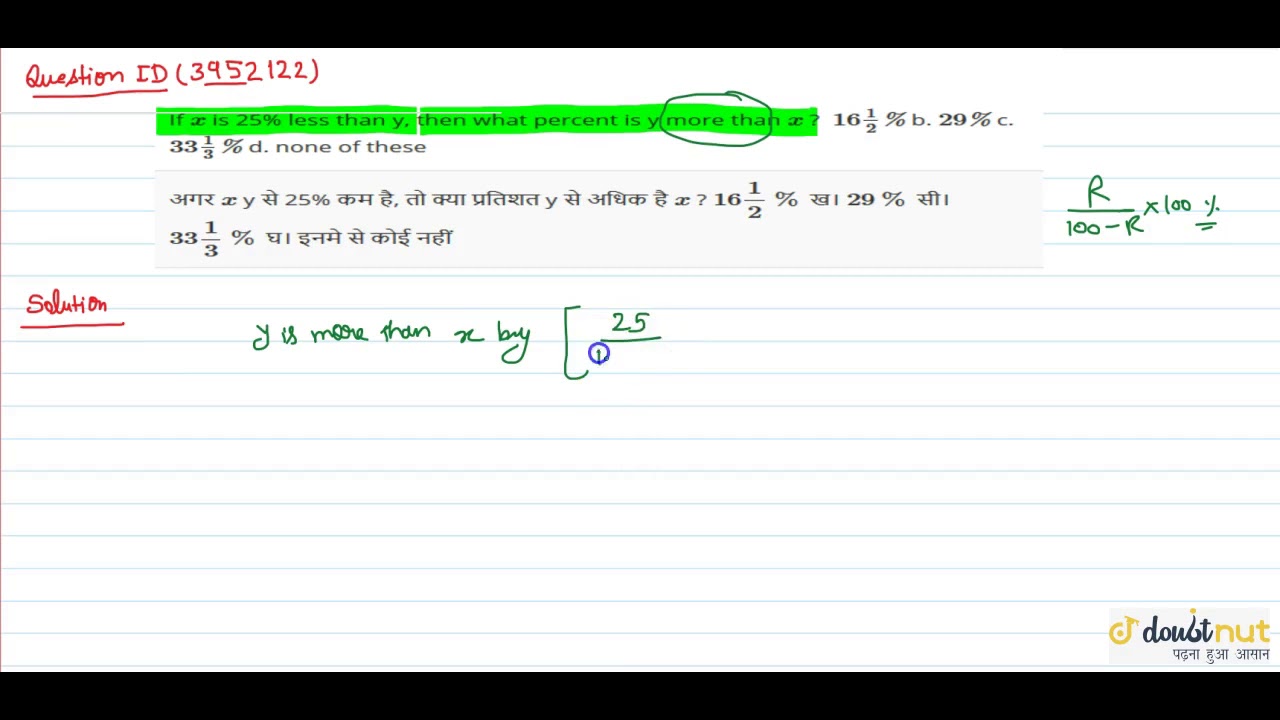 Question ID (3952122)
If x is 25% less than y, then what percent is y more than x ? 16 1/2 % b. 29 % c.
33 1/3 % d. none of these
अगर x y से 25% कम है, तो क्या प्रतिशत y से अधिक है x ? 16 1/2 % ख। 29 % सी।
33 1/3 % घ। इनमे से कोई नहीं
R/100-R ×100 %
Solution
y is more than x by [ 25/1
doubtnut
पढ़ना हुआ आसान